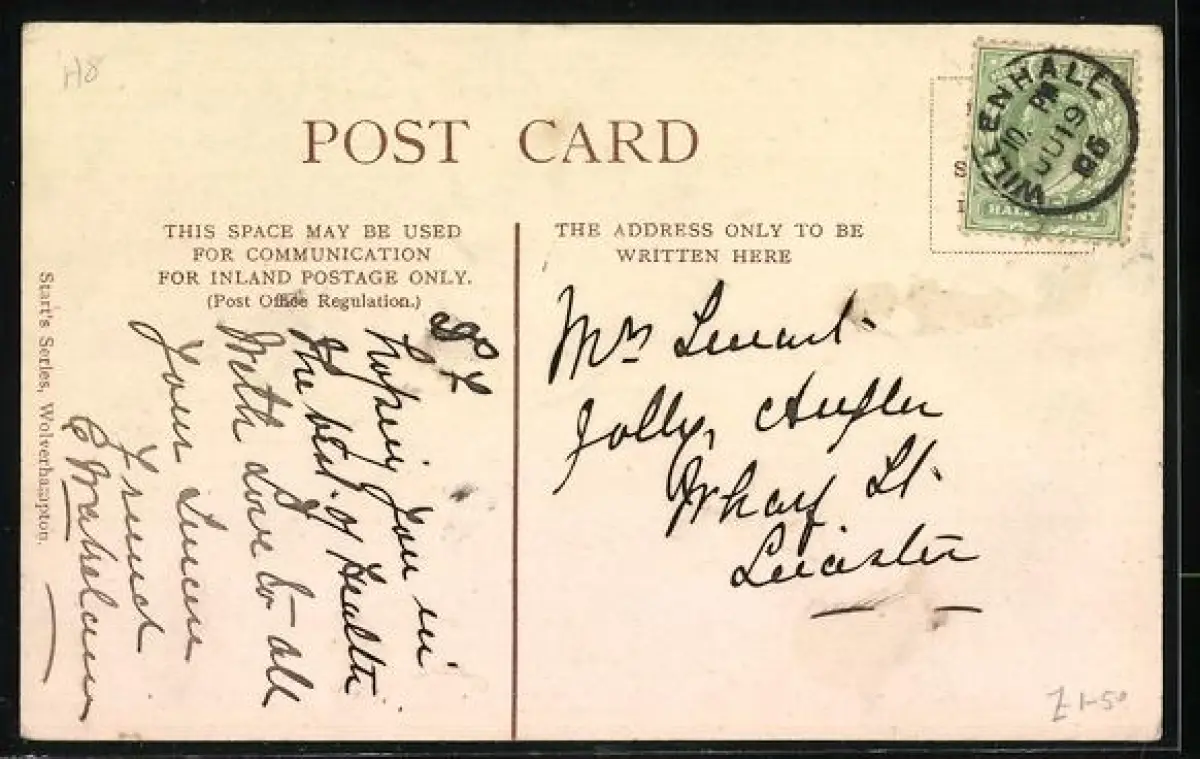 H8
POST CARD
THIS SPACE MAY BE USED
FOR COMMUNICATION
FOR INLAND POSTAGE ONLY.
(Post Office Regulation.)
hoping you in
the best of Health
With Love to all
Your Sincere
Friend
Start's Series, Wolverhampton.
THE ADDRESS ONLY TO BE
WRITTEN HERE
Mrs
Jolly Angler
Wharf St.
Leicester
WILLENHALL
10. PM
JU 19
06
HALFPENNY
£1-50